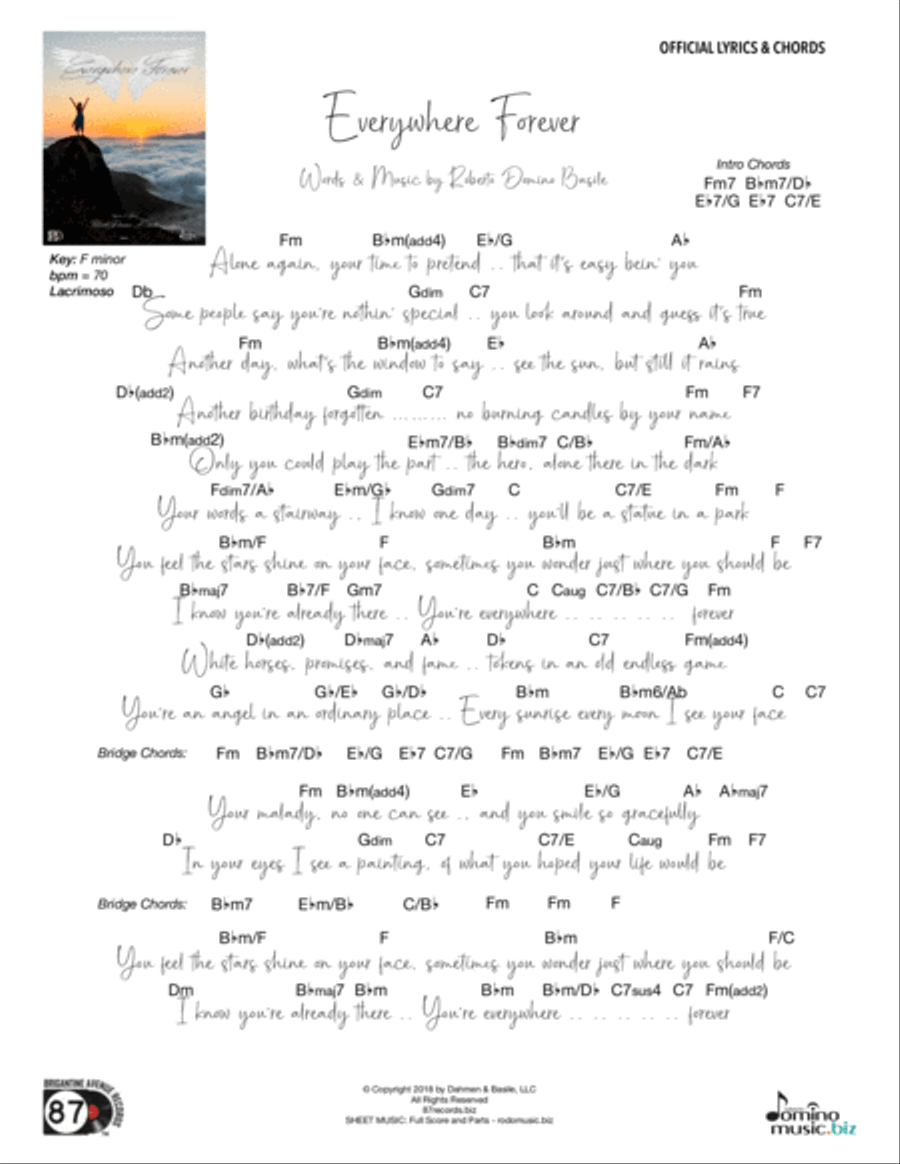 OFFICIAL LYRICS & CHORDS
Everywhere Forever
Everywhere Forever
Words & Music by Roberto Domino Basile
Intro Chords
Fm7 B♭m7/D♭
E♭7/G E♭7 C7/E
Key: F minor
bpm = 70
Lacrimoso
Fm B♭m(add4) E♭/G A♭
Alone again, your time to pretend .. that it's easy bein' you
Db Gdim C7 Fm
Some people say you're nothin' special .. you look around and guess it's true
Fm B♭m(add4) E♭ A♭
Another day, what's the window to say .. see the sun, but still it rains
D♭(add2) Gdim C7 Fm F7
Another birthday forgotten ......... no burning candles by your name
B♭m(add2) E♭m7/B♭ B♭dim7 C/B♭ Fm/A♭
Only you could play the part .. the hero, alone there in the dark
Fdim7/A♭ E♭m/G♭ Gdim7 C C7/E Fm F
Your words a stairway .. I know one day .. you'll be a statue in a park
B♭m/F F B♭m F F7
You feel the stars shine on your face, sometimes you wonder just where you should be
B♭maj7 B♭7/F Gm7 C Caug C7/B♭ C7/G Fm
I know you're already there .. You're everywhere .. .. .. .. .. forever
D♭(add2) D♭maj7 A♭ D♭ C7 Fm(add4)
White horses, promises, and fame .. tokens in an old endless game
G♭ G♭/E♭ G♭/D♭ B♭m B♭m6/Ab C C7
You're an angel in an ordinary place .. Every sunrise every moon I see your face
Bridge Chords: Fm B♭m7/D♭ E♭/G E♭7 C7/G Fm B♭m7 E♭/G E♭7 C7/E
Fm B♭m(add4) E♭ E♭/G A♭ A♭maj7
Your malady, no one can see .. and you smile so gracefully
D♭ Gdim C7 C7/E Caug Fm F7
In your eyes I see a painting, of what you hoped your life would be
Bridge Chords: B♭m7 E♭m/B♭ C/B♭ Fm Fm F
B♭m/F F B♭m F/C
You feel the stars shine on your face, sometimes you wonder just where you should be
Dm B♭maj7 B♭m B♭m B♭m/D♭ C7sus4 C7 Fm(add2)
I know you're already there .. You're everywhere .. .. .. .. .. forever
BRIGANTINE AVENUE RECORDS
87
© Copyright 2018 by Dahmen & Basile, LLC
All Rights Reserved
87records.biz
SHEET MUSIC: Full Score and Parts - rodomusic.biz
domino
music.biz